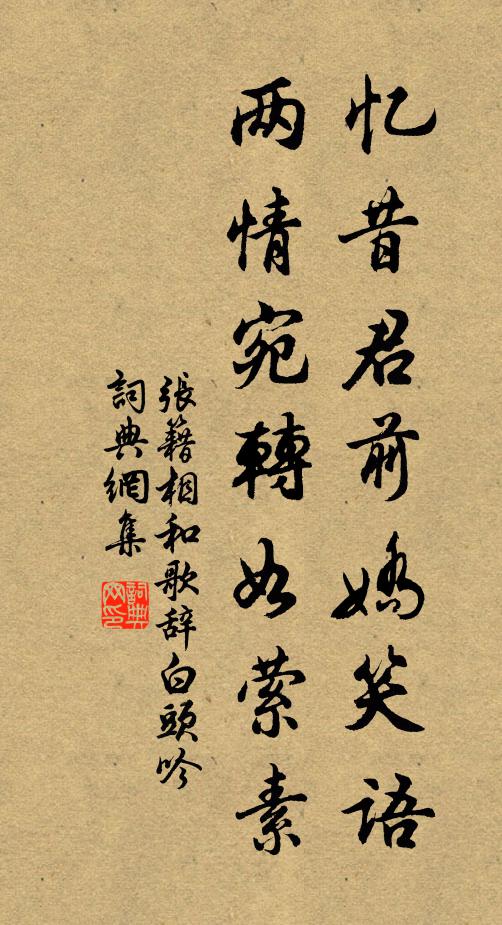 忆昔君前嬌笑语
两情宛轉如萦素
張籍相和歌辞白頭吟
詞典網集
詞典網印